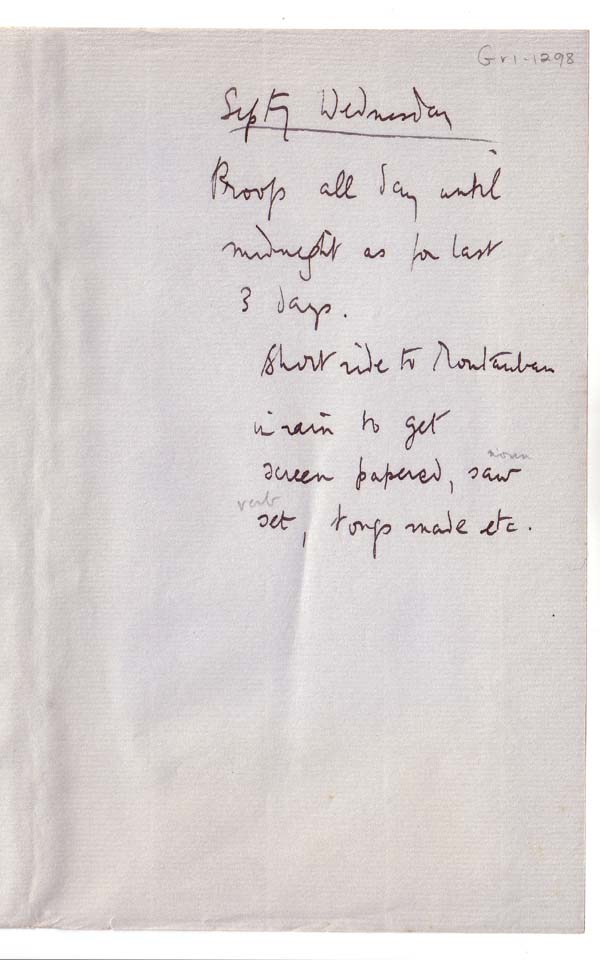 Gr1-1298
Sept 7 Wednesday
Proofs all day until
midnight as for last
3 days.
Short ride to Montauban
in rain to get
noun
screen papered, saw
verb
set, tongs made etc.